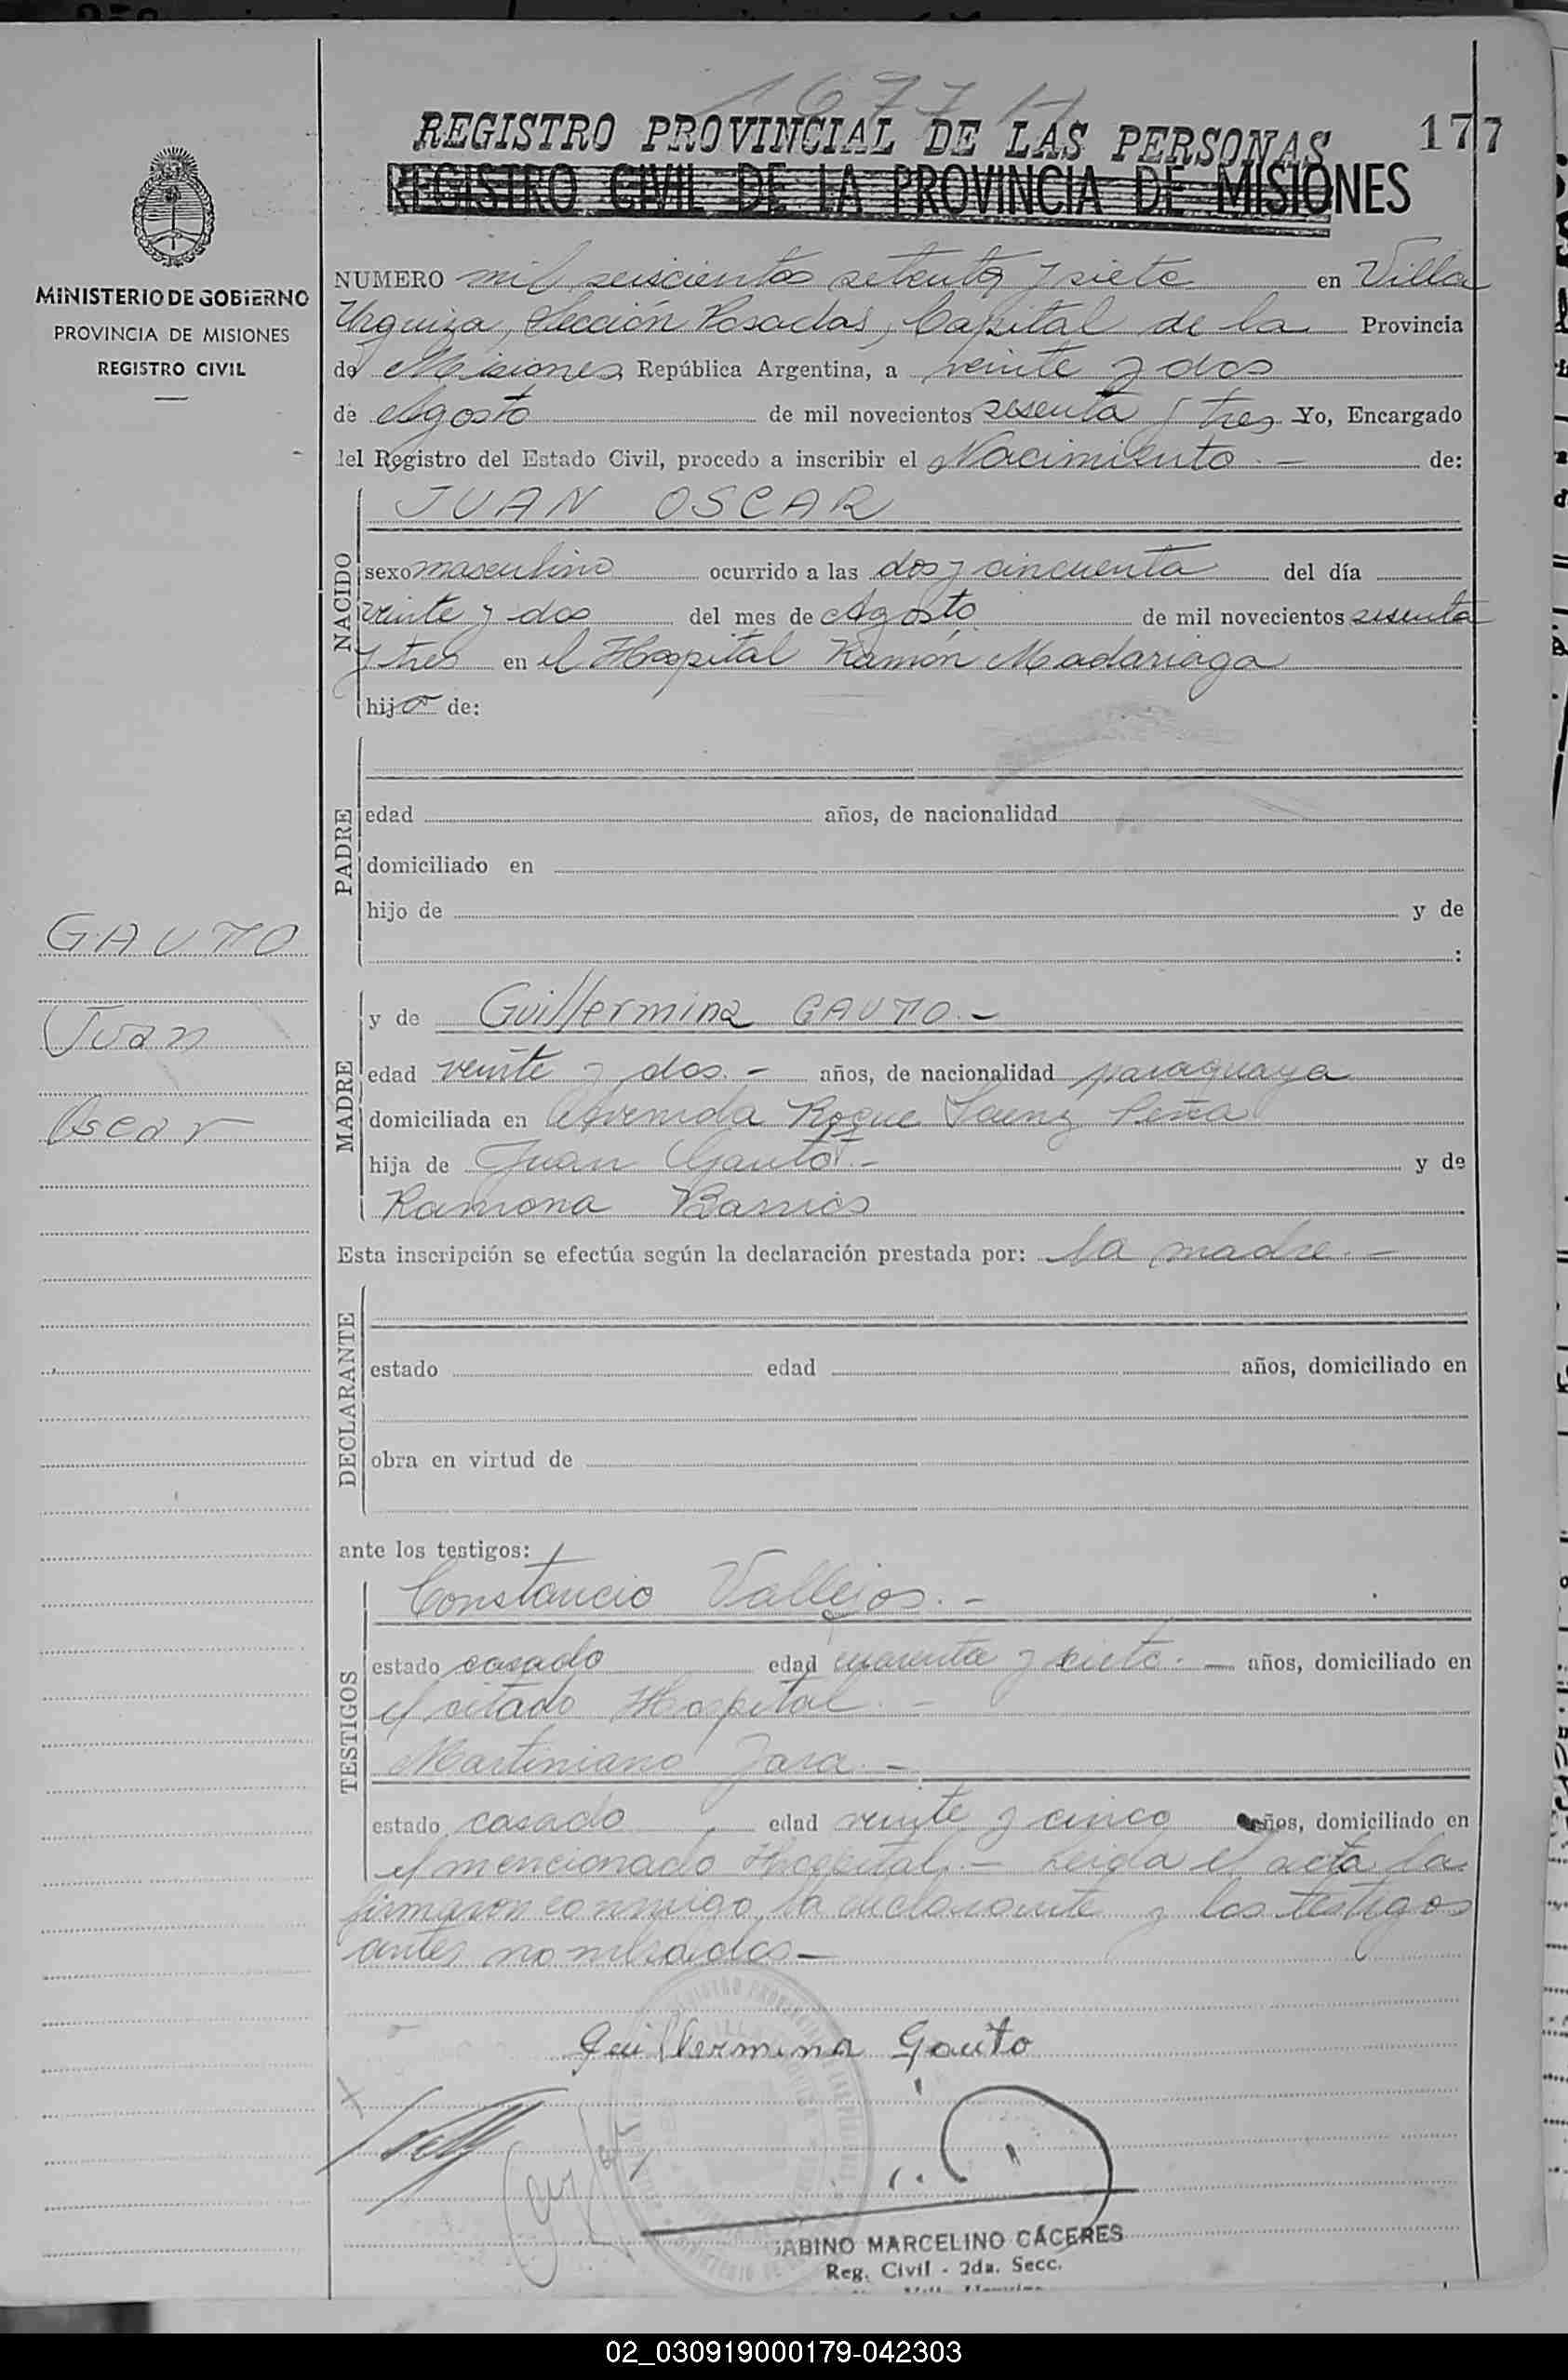 1677 M
REGISTRO PROVINCIAL DE LAS PERSONAS 177
REGISTRO CIVIL DE LA PROVINCIA DE MISIONES
MINISTERIO DE GOBIERNO
PROVINCIA DE MISIONES
REGISTRO CIVIL
NUMERO mil seiscientos setenta y siete en Villa
Urquiza, Sección Posadas, Capital de la Provincia
de Misiones República Argentina, a veinte y dos
de Agosto de mil novecientos sesenta y tres Yo, Encargado
del Registro del Estado Civil, procedo a inscribir el Nacimiento.- de:
NACIDO
JUAN OSCAR
sexo masculino ocurrido a las dos y cincuenta del día
veinte y dos del mes de Agosto de mil novecientos sesenta
y tres en el Hospital Ramón Madariaga
hijo de:
PADRE
edad años, de nacionalidad
domiciliado en
hijo de y de
:
GAUTO
Juan
Oscar
MADRE
y de Guillermina GAUTO.-
edad veinte y dos.- años, de nacionalidad paraguaya
domiciliada en Avenida Roque Saenz Peña
hija de Juan Gauto.- y de
Ramona Barrios
Esta inscripción se efectúa según la declaración prestada por: la madre.-
DECLARANTE
estado edad años, domiciliado en
obra en virtud de
ante los testigos:
TESTIGOS
Constancio Vallejos.-
estado casado edad cuarenta y siete.- años, domiciliado en
el citado Hospital.-
Martiniano Jara.-
estado casado edad veinte y cinco años, domiciliado en
el mencionado Hospital.- Leida el acta la
firmaron conmigo la declarante y los testigos
antes nombrados-
Guillermina Gauto
SABINO MARCELINO CÁCERES
Reg. Civil - 2da. Secc.
02_030919000179-042303